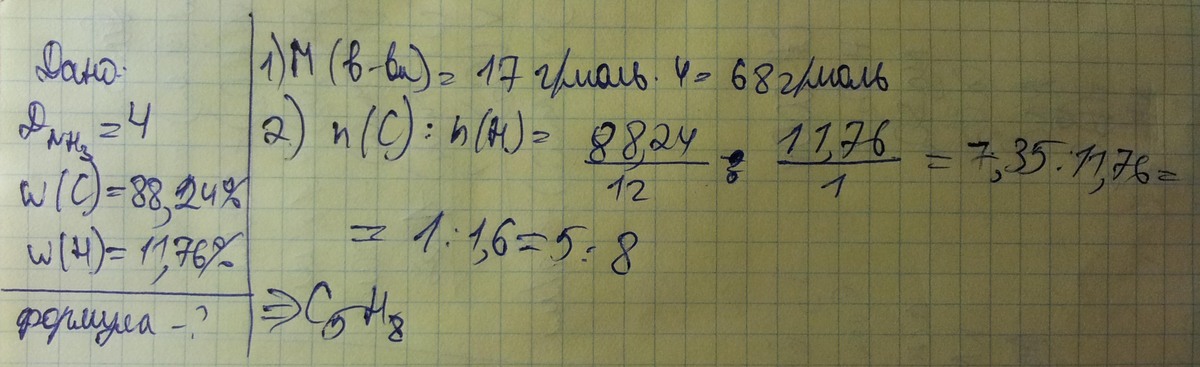 Дано:
D_NH₃ = 4
w(C) = 88,24%
w(H) = 11,76%
формула - ?
1) M (в-ва) = 17 г/моль · 4 = 68 г/моль
2) n(C) : n(H) = 88,24/12 : 11,76/1 = 7,35 : 11,76 =
= 1 : 1,6 = 5 : 8
⇒ C₅H₈